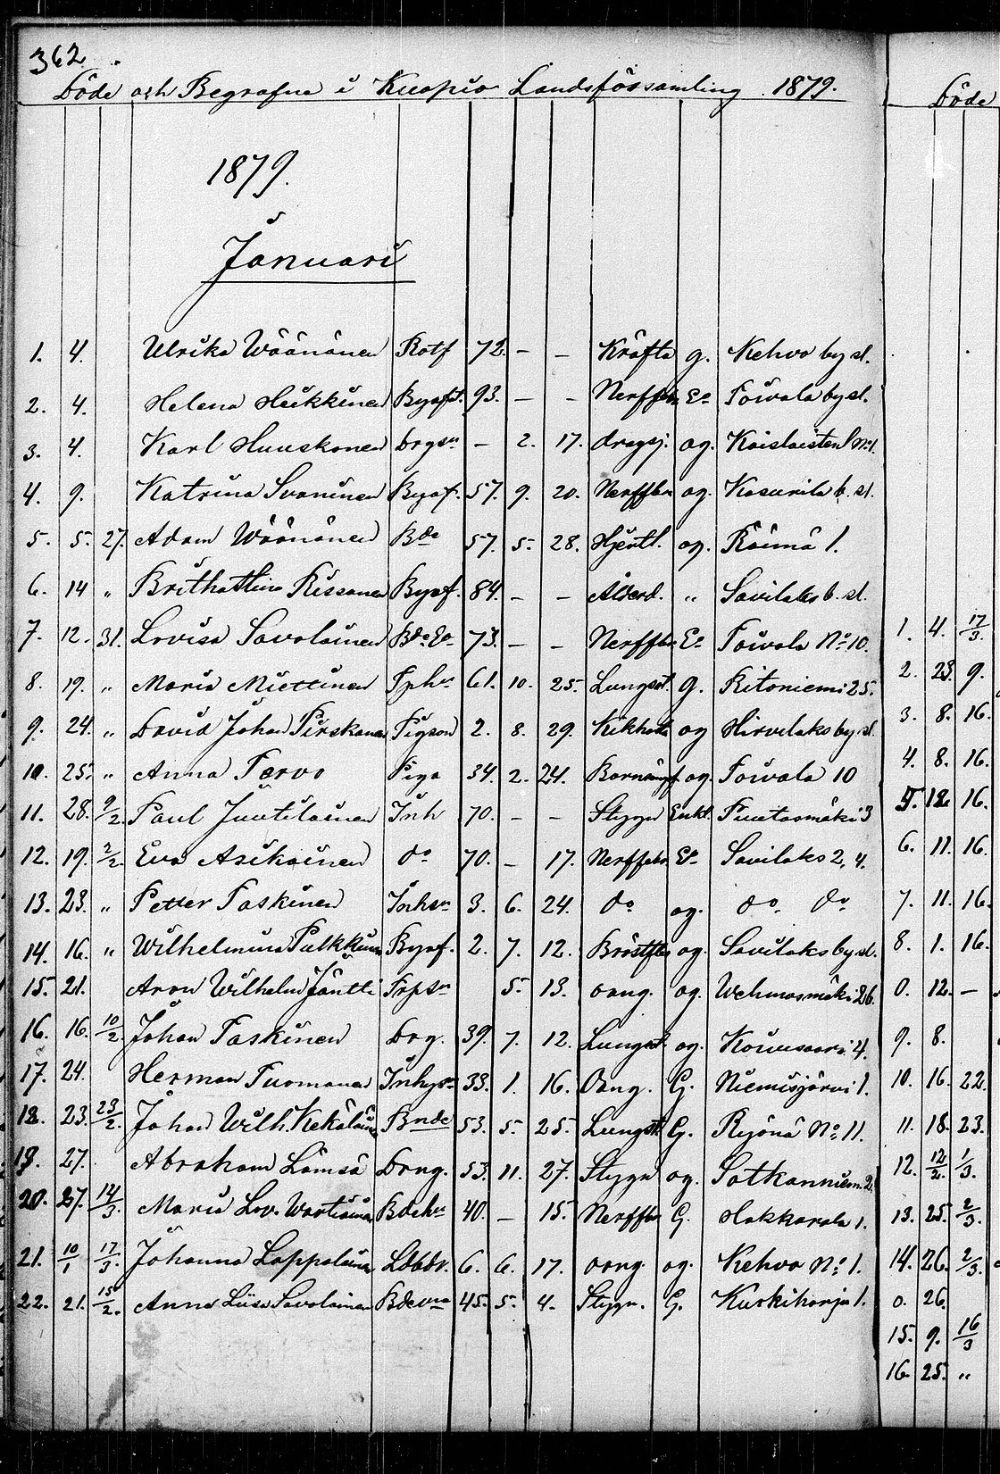 362.
Döde och Begrafne i Kuopio Landsförsamling 1879.
1879.
Januari
1. 4. Ulrika Wäänänen Rotf 72. – – Kräfta g. Kehvo by sl.
2. 4. Helena Heikkinen 93. – – Nerffbr Ea Toivala by sl.
3. 4. Karl Huuskonen Drgsn – 2. 17. dragsj. og. Kaislaisten l. No 1.
4. 9. Katrina Svaninen 57. 9. 20. Nerffbr og. Kasurila b. sl.
5. 5. 27. Adam Wäänänen Bde 57. 5. 28. og. Räimä 1.
6. 14 " Brithattlina Rissanen 84. – – Ålderd. " Savilaks b. sl.
7. 12. 31. Lovisa Savolainen Bde Ea 73. – – Nerffbr Ea Toivala No 10.
8. 19. " Maria Miettinen Tphu 61. 10. 25. Lungsot. g. Ritoniemi 25.
9. 24. " David Johan Pirskanen Pigson 2. 8. 29. Kikhosta og Hirvilaks by sl.
10. 25. " Anna Tervo Piga 34. 2. 24. og. Toivala 10
11. 28. 9/2. Paul Juutilainen Inh 70. – – Stygn Enkl. Puutosmäki 3
12. 19. 2/2. Eva Asikainen do 70. – 17. Nerffebr Ea Savilaks 2, 4.
13. 23. " Petter Taskinen Inhsn 3. 6. 24. do og. do. do
14. 16. " Wilhelmina Pulkkinen 2. 7. 12. Bröstfbr og. Savilaks by sl.
15. 21. Aron Wilhelm Jäntti Trpsn 5. 13. oang. og. Wehmasmäki 26.
16. 16. 10/2. Johan Taskinen Drg. 39. 7. 12. Lungsot. og. Kouvusaari 4.
17. 24. Herman Tuomanen Inhysn 33. 1. 16. Oang. G. Niemisjärvi 1.
18. 23. 23/2. Johan Wilh. Kekäläinen Bnde 53. 5. 25. Lungsot. G. Ryönä No 11.
19. 27. Abraham Lämsä Drng. 53. 11. 27. Stygn og. Sotkanniemi 2.
20. 27. 14/3. Maria Lov. Wartiainen Bdehu 40. – 15. Nerffbr G. Hakkarala 1.
21. 10/1 17/3. Johanna Lappalainen Ldbdr. 6. 6. 17. oang og. Kehvo No 1.
22. 21. 15/2. Anna Liisa Savolainen 45. 5. 4. Stygn. G. Kuskiharju 1.
Döde
1. 4. 17/3.
2. 23. 9.
3. 8. 16.
4. 8. 16.
5. 12. 16.
6. 11. 16.
7. 11. 16.
8. 1. 16.
0. 12. –
9. 8.
10. 16. 22.
11. 18. 23.
12. 12/2. 1/3.
13. 25. 2/3.
14. 26. 2/3.
0. 26.
15. 9. 16/3
16. 25. "